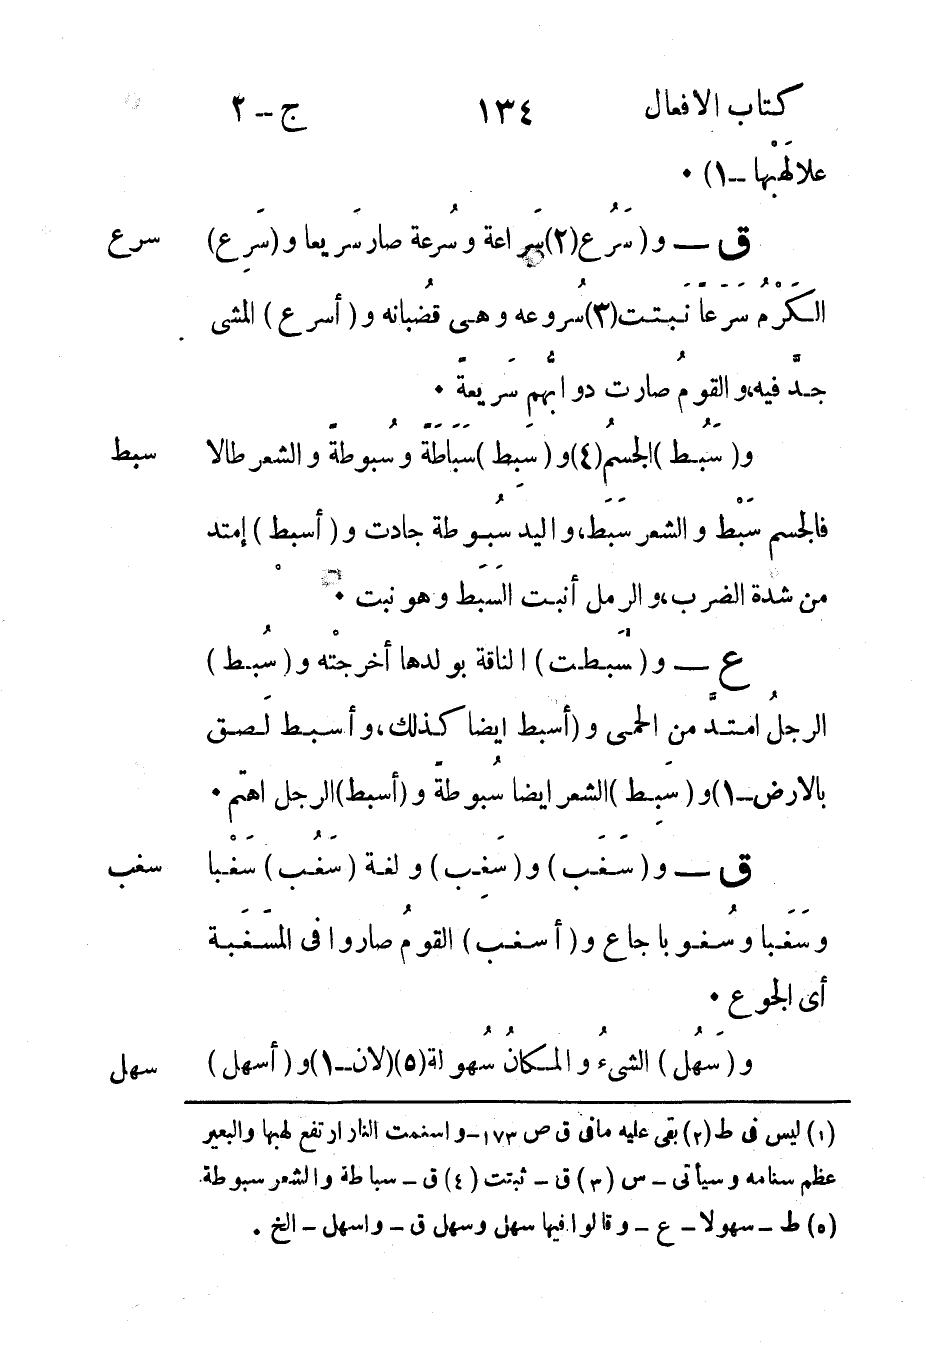 كتاب الافعال ١٣٤ ج ــ ٢
علا لَهْبُها ــ ١) •
ق ــ و (سَرُع (٢) سَراعة وسُرعة صار سَريعا و (سَرِع) سرع
الكَرْمُ سَرَعاً نَبَتَت (٣) سُروعه وهى قُضبانه و (أسرع) المشى
جدَّ فيه، و القومُ صارت دوابُّهم سَريعةً •
و (سَبُط) الجسمُ (٤) و (سَبِط) سَبَاطَةً وسُبوطةً و الشعر طالا سبط
فالجسم سَبْط و الشعر سَبَط، و اليد سُبوطة جادت و (أسبط) إمتد
من شدة الضرب، و الرمل أنبت السَبَط وهو نبت •
ع ــ و (سَبَّطت) الناقة بولدها أخرجتْه و (سُبط)
الرجلُ امتدَّ من الحمى و (أسبط ايضا كذلك، و أسبط لَصق
بالارض ــ ١) و (سَبِط) الشعر ايضا سُبوطةً و (أسبط) الرجل اهتم •
ق ــ و (سَغَب) و (سَغِب) و لغة (سَغُب) سَغْبا سغب
و سَغَبا و سُغوبا جاع و (أسغب) القومُ صاروا فى المَسْغَبة
أى الجوع •
و (سَهُل) الشىءُ و المكانُ سُهولة (٥) (لان ــ ١) و (أسهل) سهل
(١) ليس فى ط (٢) بقى عليه مافى ق ص ١٧٣ - و اسنمت النار ارتفع لهبها والبعير
عظم سنامه و سيأتى ــ س (٣) ق ــ ثبتت (٤) ق ــ سباطة و الشعر سبوطة
(٥) ط ــ سهولا ــ ع ــ و قالوا فيها سهل وسهل ق ــ و اسهل ــ الخ .